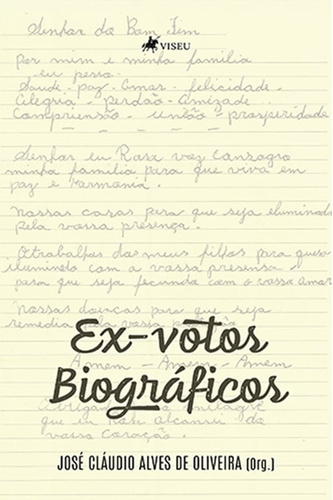 Senhor do Bom Fim
VISEU
por mim e minha familia
eu peço
Saude - paz - amor - felicidade -
Alegria - Perdão - Amizade
Compreensão - união - prosperidade
Senhor eu Rosa vos Consagro
minha familia para que viva em
paz e harmonia.
Nossas casas para que seja iluminada
pela vossa presença.
O trabalho dos meus filhos para que seja
iluminado com a vossa presensa -
para que seja fecunda com o vosso amor
Nossas doenças para que seja
remedia pela vossa
Ex-votos
Amem - Amem - Amem
Biográficos
milagre
que eu Rosa alcansei do
vosso Coração.
JOSÉ CLÁUDIO ALVES DE OLIVEIRA (Org.)